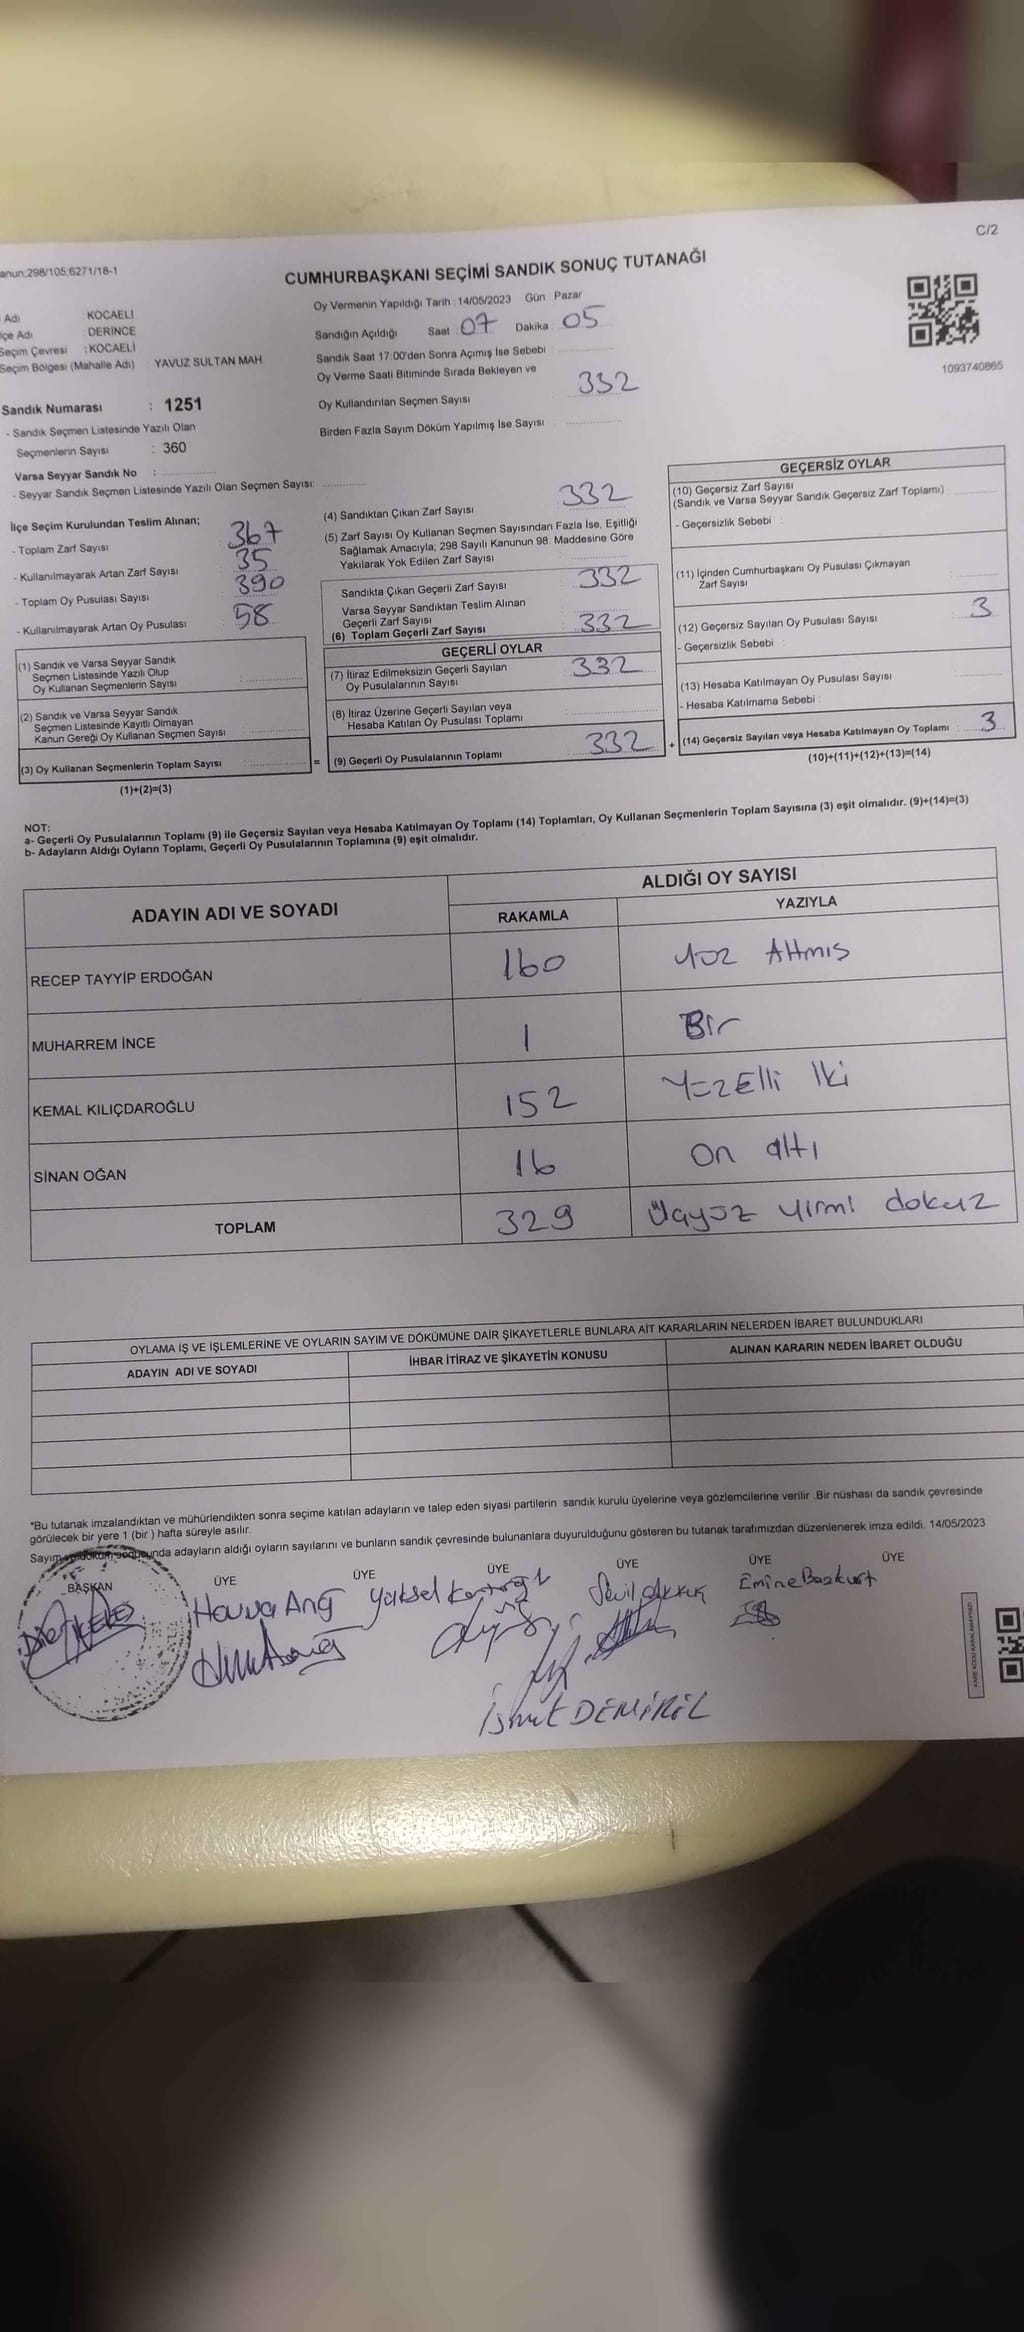 C/2
anun;298/105;6271/18-1
CUMHURBAŞKANI SEÇİMİ SANDIK SONUÇ TUTANAĞI
Adı KOCAELİ
lçe Adı : DERİNCE
Seçim Çevresi : KOCAELİ
Seçim Bölgesi (Mahalle Adı) : YAVUZ SULTAN MAH.
Oy Vermenin Yapıldığı Tarih : 14/05/2023 Gün : Pazar
Sandığın Açıldığı Saat : 07 Dakika : 05
Sandık Saat 17:00'den Sonra Açımış İse Sebebi :
Oy Verme Saati Bitiminde Sırada Bekleyen ve
Oy Kullandırılan Seçmen Sayısı : 332
Birden Fazla Sayım Döküm Yapılmış İse Sayısı :
1093740865
Sandık Numarası : 1251
- Sandık Seçmen Listesinde Yazılı Olan
Seçmenlerin Sayısı : 360
Varsa Seyyar Sandık No :
- Seyyar Sandık Seçmen Listesinde Yazılı Olan Seçmen Sayısı:
İlçe Seçim Kurulundan Teslim Alınan;
- Toplam Zarf Sayısı : 367
- Kullanılmayarak Artan Zarf Sayısı : 35
- Toplam Oy Pusulası Sayısı : 390
- Kullanılmayarak Artan Oy Pusulası : 58
(1) Sandık ve Varsa Seyyar Sandık
Seçmen Listesinde Yazılı Olup
Oy Kullanan Seçmenlerin Sayısı :
(2) Sandık ve Varsa Seyyar Sandık
Seçmen Listesinde Kayıtlı Olmayan
Kanun Gereği Oy Kullanan Seçmen Sayısı :
(3) Oy Kullanan Seçmenlerin Toplam Sayısı :
(1)+(2)=(3)
=
(4) Sandıktan Çıkan Zarf Sayısı : 332
(5) Zarf Sayısı Oy Kullanan Seçmen Sayısından Fazla İse, Eşitliği
Sağlamak Amacıyla; 298 Sayılı Kanunun 98. Maddesine Göre
Yakılarak Yok Edilen Zarf Sayısı :
Sandıkta Çıkan Geçerli Zarf Sayısı : 332
Varsa Seyyar Sandıktan Teslim Alınan
Geçerli Zarf Sayısı :
(6) Toplam Geçerli Zarf Sayısı : 332
GEÇERLİ OYLAR
(7) İtiraz Edilmeksizin Geçerli Sayılan
Oy Pusulalarının Sayısı : 332
(8) İtiraz Üzerine Geçerli Sayılan veya
Hesaba Katılan Oy Pusulası Toplamı :
(9) Geçerli Oy Pusulalarının Toplamı : 332
+
GEÇERSİZ OYLAR
(10) Geçersiz Zarf Sayısı
(Sandık ve Varsa Seyyar Sandık Geçersiz Zarf Toplamı) :
- Geçersizlik Sebebi :
(11) İçinden Cumhurbaşkanı Oy Pusulası Çıkmayan
Zarf Sayısı :
(12) Geçersiz Sayılan Oy Pusulası Sayısı : 3
- Geçersizlik Sebebi :
(13) Hesaba Katılmayan Oy Pusulası Sayısı :
- Hesaba Katılmama Sebebi :
(14) Geçersiz Sayılan veya Hesaba Katılmayan Oy Toplamı : 3
(10)+(11)+(12)+(13)=(14)
NOT:
a- Geçerli Oy Pusulalarının Toplamı (9) ile Geçersiz Sayılan veya Hesaba Katılmayan Oy Toplamı (14) Toplamları, Oy Kullanan Seçmenlerin Toplam Sayısına (3) eşit olmalıdır. (9)+(14)=(3)
b- Adayların Aldığı Oyların Toplamı, Geçerli Oy Pusulalarının Toplamına (9) eşit olmalıdır.
ADAYIN ADI VE SOYADI ALDIĞI OY SAYISI
RAKAMLA YAZIYLA
RECEP TAYYİP ERDOĞAN 160 Yüz Altmış
MUHARREM İNCE 1 Bir
KEMAL KILIÇDAROĞLU 152 Yüzelli İki
SİNAN OĞAN 16 On altı
TOPLAM 329 Üçyüz yirmi dokuz
OYLAMA İŞ VE İŞLEMLERİNE VE OYLARIN SAYIM VE DÖKÜMÜNE DAİR ŞİKAYETLERLE BUNLARA AİT KARARLARIN NELERDEN İBARET BULUNDUKLARI
ADAYIN ADI VE SOYADI İHBAR İTİRAZ VE ŞİKAYETİN KONUSU ALINAN KARARIN NEDEN İBARET OLDUĞU
*Bu tutanak imzalandıktan ve mühürlendikten sonra seçime katılan adayların ve talep eden siyasi partilerin sandık kurulu üyelerine veya gözlemcilerine verilir .Bir nüshası da sandık çevresinde
görülecek bir yere 1 (bir ) hafta süreyle asılır.
Sayım ve döküm sonucunda adayların aldığı oyların sayılarını ve bunların sandık çevresinde bulunanlara duyurulduğunu gösteren bu tutanak tarafımızdan düzenlenerek imza edildi. 14/05/2023
BAŞKAN ÜYE ÜYE ÜYE ÜYE ÜYE ÜYE
Havva Yüksel Sevil Emine Bozkurt
İsmet DEMİREL